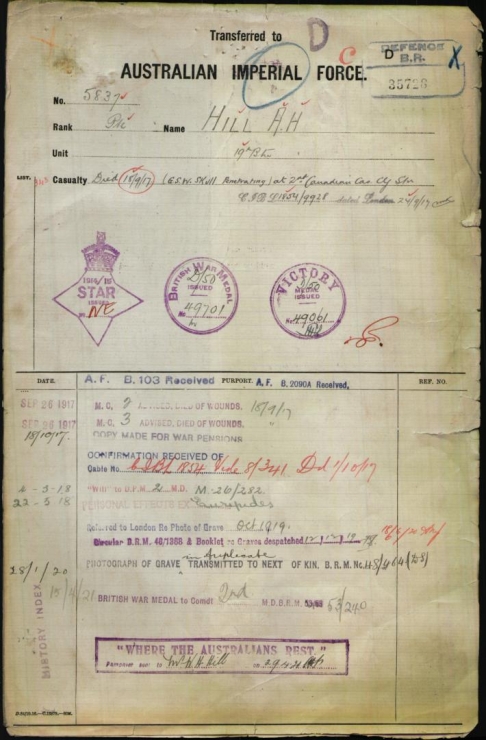 Transferred to
D
C
D
DEFENCE
B.R.
35728
X
AUSTRALIAN IMPERIAL FORCE.
No. 5837
Rank Pte Name HILL A.H
Unit 19th Bn.
LIST. Casualty Died 18/9/17 (G.S.W. Skull Penetrating) at 2nd Canadian Cas Clg Stn
1854/9928 dated London 24/9/17
1914 15
STAR
ISSUED
No NE
BRITISH WAR MEDAL
2/50
ISSUED
49701
VICTORY
2/50
MEDAL
ISSUED
No. 49061
DATE. PURPORT. REF. NO.
A.F. B.103 Received A.F. B.2090A Received.
SEP 26 1917 M.C. 2 ADVISED, DIED OF WOUNDS. 18/9/17
SEP 26 1917 M.C. 3 ADVISED, DIED OF WOUNDS. "
18/10/17. COPY MADE FOR WAR PENSIONS
CONFIRMATION RECEIVED OF
Cable No. 1854 Vide 8/341 Dd 1/10/17
4-3-18 "Will" to D.F.M. 2 M.D. M.26/282.
22-3-18 PERSONAL EFFECTS EX Euripides
Referred to London Re Photo of Grave Oct 1919.
Circular B.R.M. 46/1368 & Booklet re Graves despatched 12/12/19
in triplicate
28/1/20 PHOTOGRAPH OF GRAVE TRANSMITTED TO NEXT OF KIN. B.R.M. No. 48/464
15/4/21 BRITISH WAR MEDAL to Comdt 2nd M.D. B.R.M. 53/240
HISTORY INDEX
"WHERE THE AUSTRALIANS REST"
Pamphlet sent to Mr H.H. Hill on 29.4.21